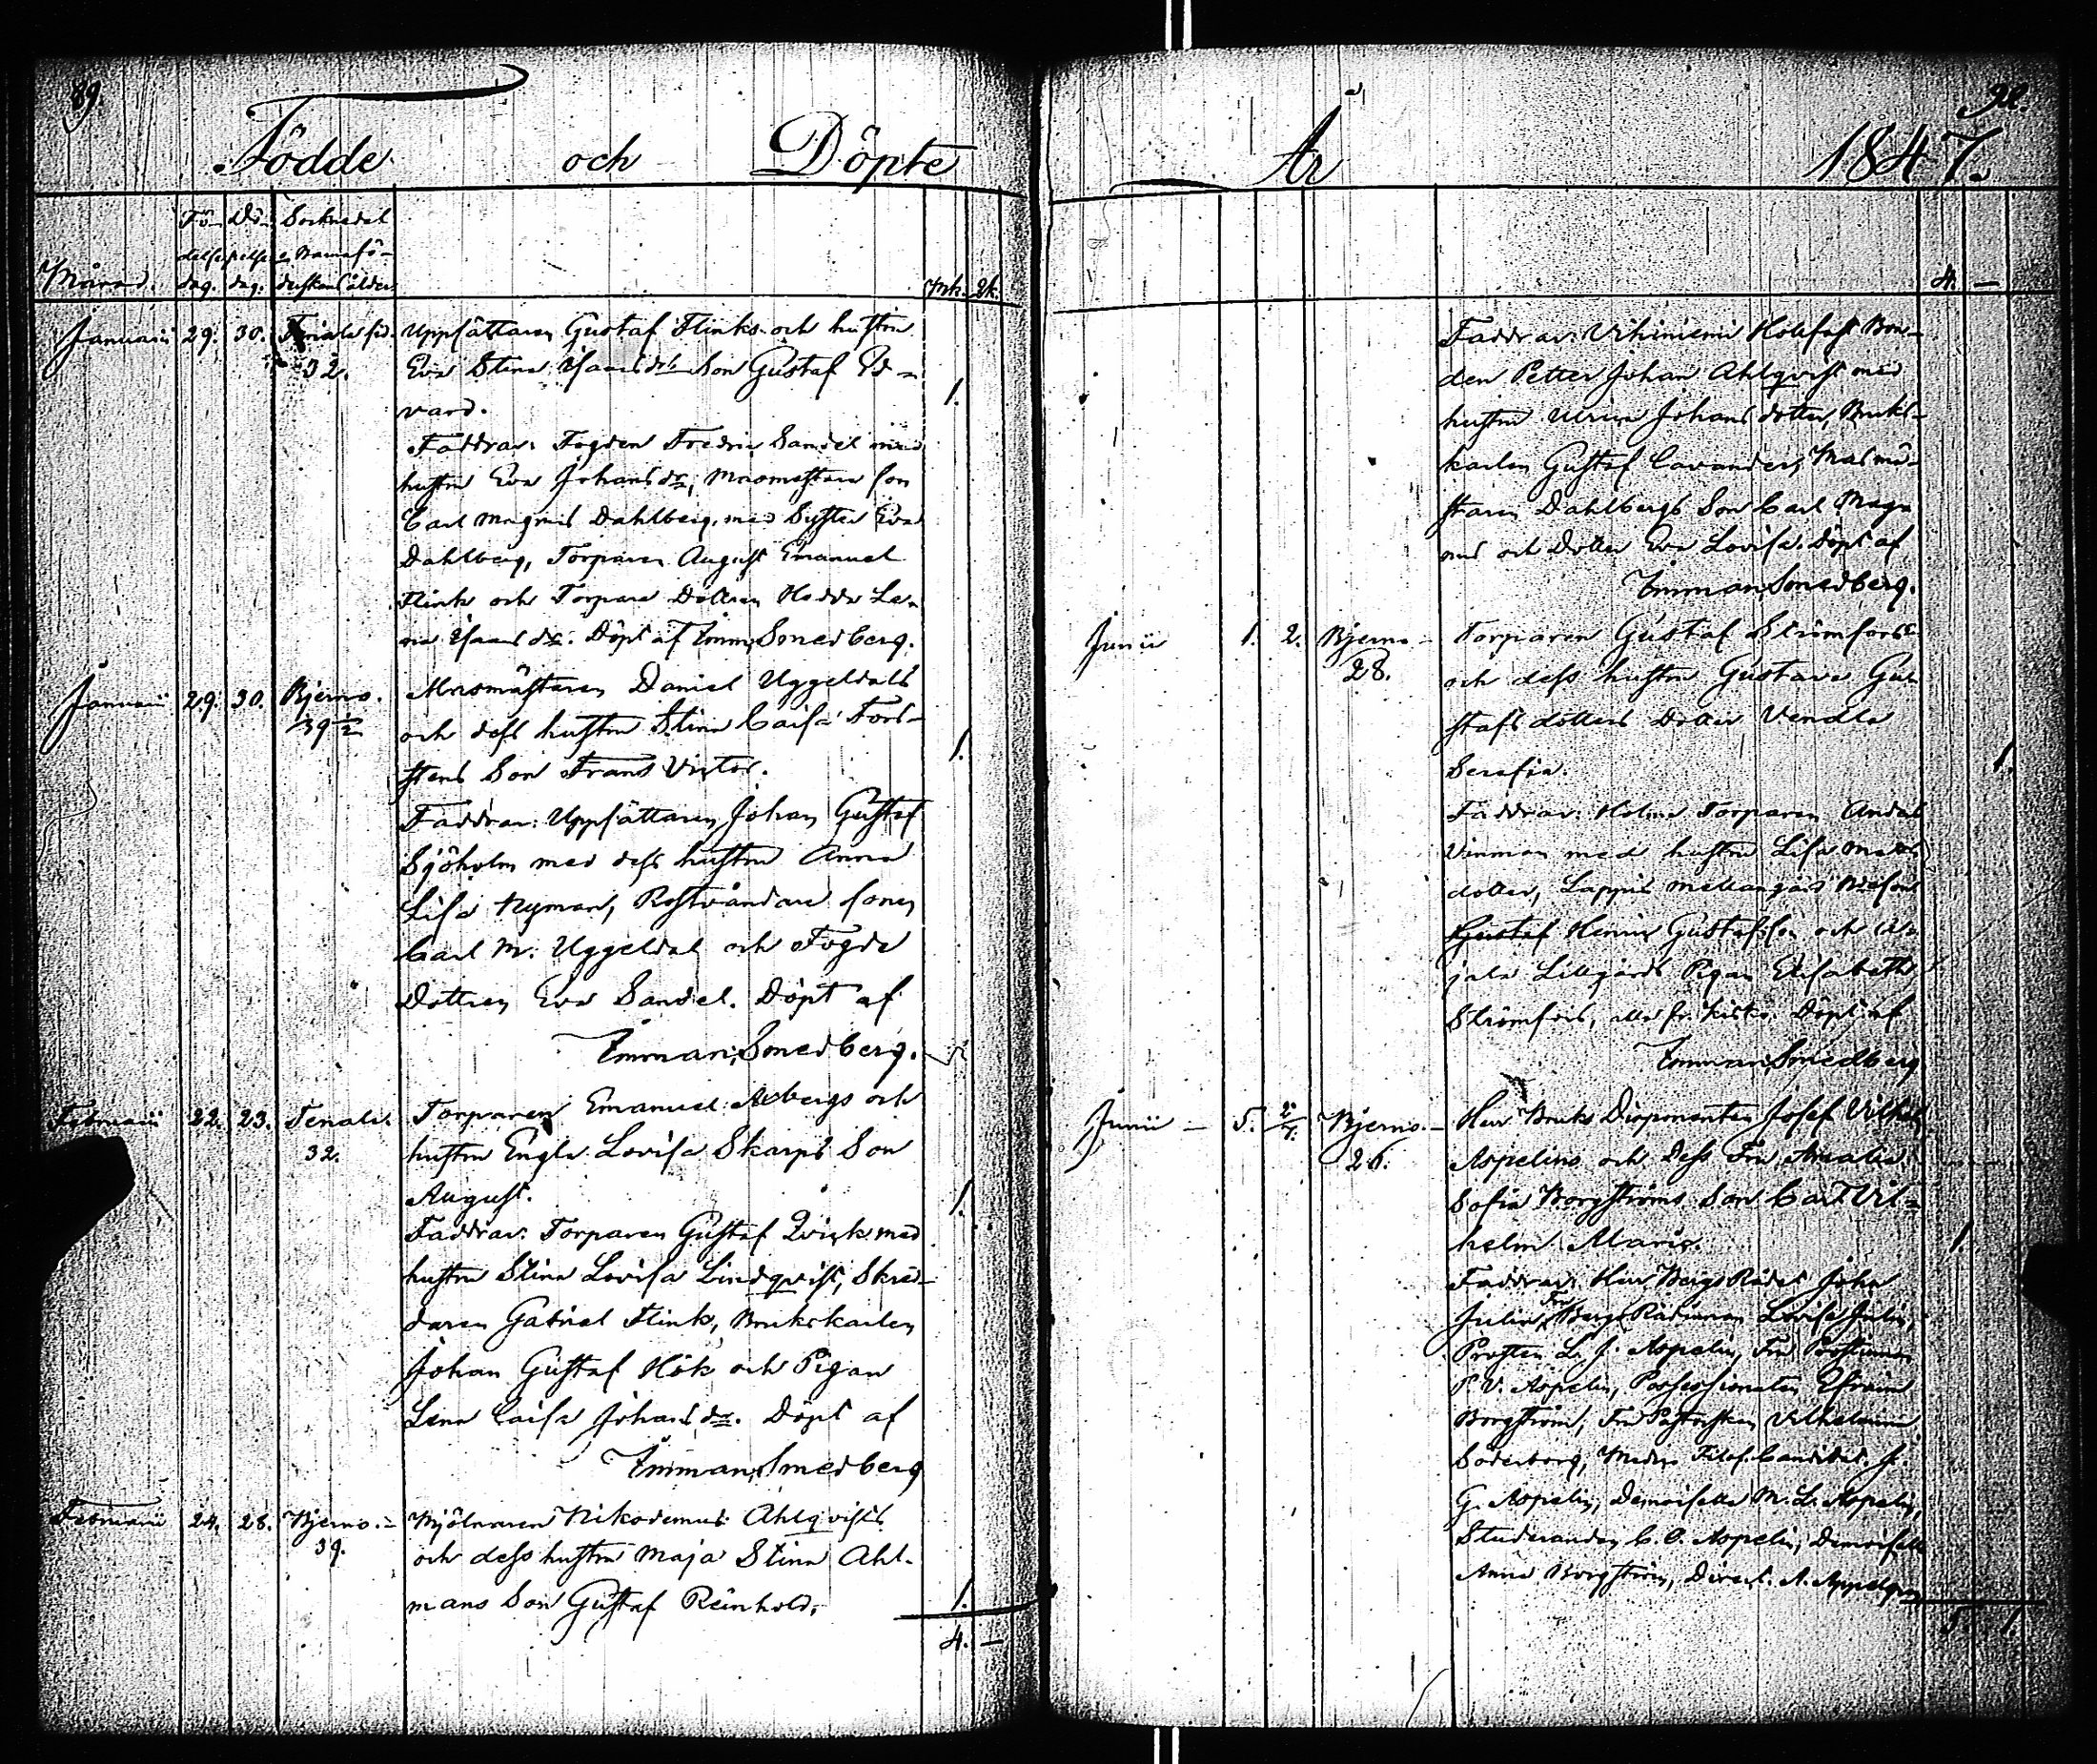 89.
Födde och Döpte
Månad.
Fö- delse dag.
Dö- pelse dag.
Socknedel
o Barnafö-
derskans ålder
Mk. Qk.
Januarii 29. 30. 32.
Uppsättaren Gustaf Flinks och hustrn
Eva Stina Isaacs dr Son Gustaf Ed-
vard. 1.
Faddrar: Fogden Fredric Sandel med
hustrn Eva Johans dr, Masmästare son
Carl Magnus Dahlberg, med Syster Eva
Dahlberg, Torparen August Emanuel
Flink och Torpare Dottren Hedda Le-
na Isaacs dr. Döpt af Imman. Smedberg.
Januarii 29. 30. Bjerno. 39 1/2
Masmästaren Daniel Uggeldals
och dess hustrn Stina Caisa Fors-
stens Son Frans Victor. 1.
Faddrar: Uppsättaren Johan Gustaf
Sjöholm med dess hustrn Anna
Lisa Nyman, Rostvändare sonen
Carl M. Uggeldal och Fogde
Dottren Eva Sandel. Döpt af
Imman. Smedberg.
Februarii 22. 23. Tenala. 32.
Torparen Emanuel Åbergs och
hustrn Engla Lovisa Skarps Son
August. 1.
Faddrar: Torparen Gustaf Qvick med
hustrn Stina Lovisa Lindqvist, Skräd-
daren Gabriel Flink, Brukskarlen
Johan Gustaf Hök och Pigan
Lena Caisa Johans dr. Döpt af
Imman. Smedberg
Februarii 24. 28. Bjerno. 39.
Mjölnaren Nikodemus Ahlqvists
och dess hustrn Maja Stina Ahl-
mans Son Gustaf Reinhold. 1.
4. —
90.
År 1847.
4. —
Faddrar: Vihiniemi Bon-
den Petter Johan Ahlqvist med
hustrn Ulrica Johans dotter, Bruks-
karlen Gustaf Cavander, Masmä-
staren Dahlbergs Son Carl Mag-
nus och Dotter Eva Lovisa. Döpt af
Imman. Smedberg.
Junii 1. 2. Bjerno 28.
Torparen Gustaf Strömfors
och dess hustrn Gustava Gu-
stafs dotters Dotter Vendla
Serafia. 1.
Faddrar: Holma Torparen
Vinman med hustrn Lisa Mats
dotter, Lappis mellangård
Gustaf Henric Gustafsson och
jala Lillgårds Pigan Elisabeth
Strömfors, alla fr. Kisko. Döpt af
Imman. Smedberg
Junii 5. 2/7. Bjerno. 26.
Herr Bruks Disponenten Josef Vilhelm
Aspelins och Dess Fru Amalia
Sofia Borgströms Son Carl Vil-
helm Maric. 1.
Faddrar: Herr Bergs Rådet John
Julin, Fru Bergs Rådinnan Lovisa Julin,
Prosten L. J. Aspelin, Fru Prostinnan
P. V. Aspelin, Possessionaten Efraim
Borgström, Fru Vilhelmina
Söderborg, Medic. Filos. Candidat. J.
G. Aspelin, Demoiselle M. L. Aspelin,
Studeranden C. O. Aspelin, Demoiselle
Anna Borgström, Direct. A. Appelgren
5. 1.